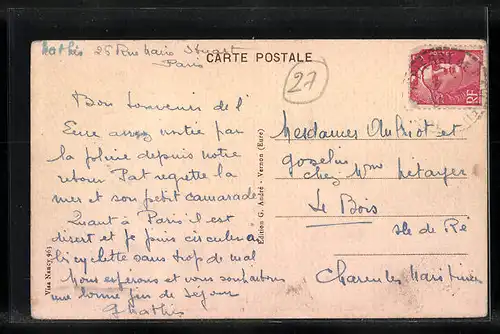 Mathis 25 Rue Marie Stuart
Paris
CARTE POSTALE
27
RF
Bon Souvenirs de l'
Eure assez visitée par
la pluie depuis notre
retour Pat regrette la
mer et son petit camarade
Quant à Paris il est
désert et je puis circuler à
bicyclette sans trop de mal
Nous espérons et vous souhaitons
une bonne fin de séjour
G Mathis
Visa Nancy 963
Edition G. André - Vernon (Eure)
Mesdames et
Gosselin
chez Mme Métayer
Le Bois
Ile de Ré
Charentes Maritimes